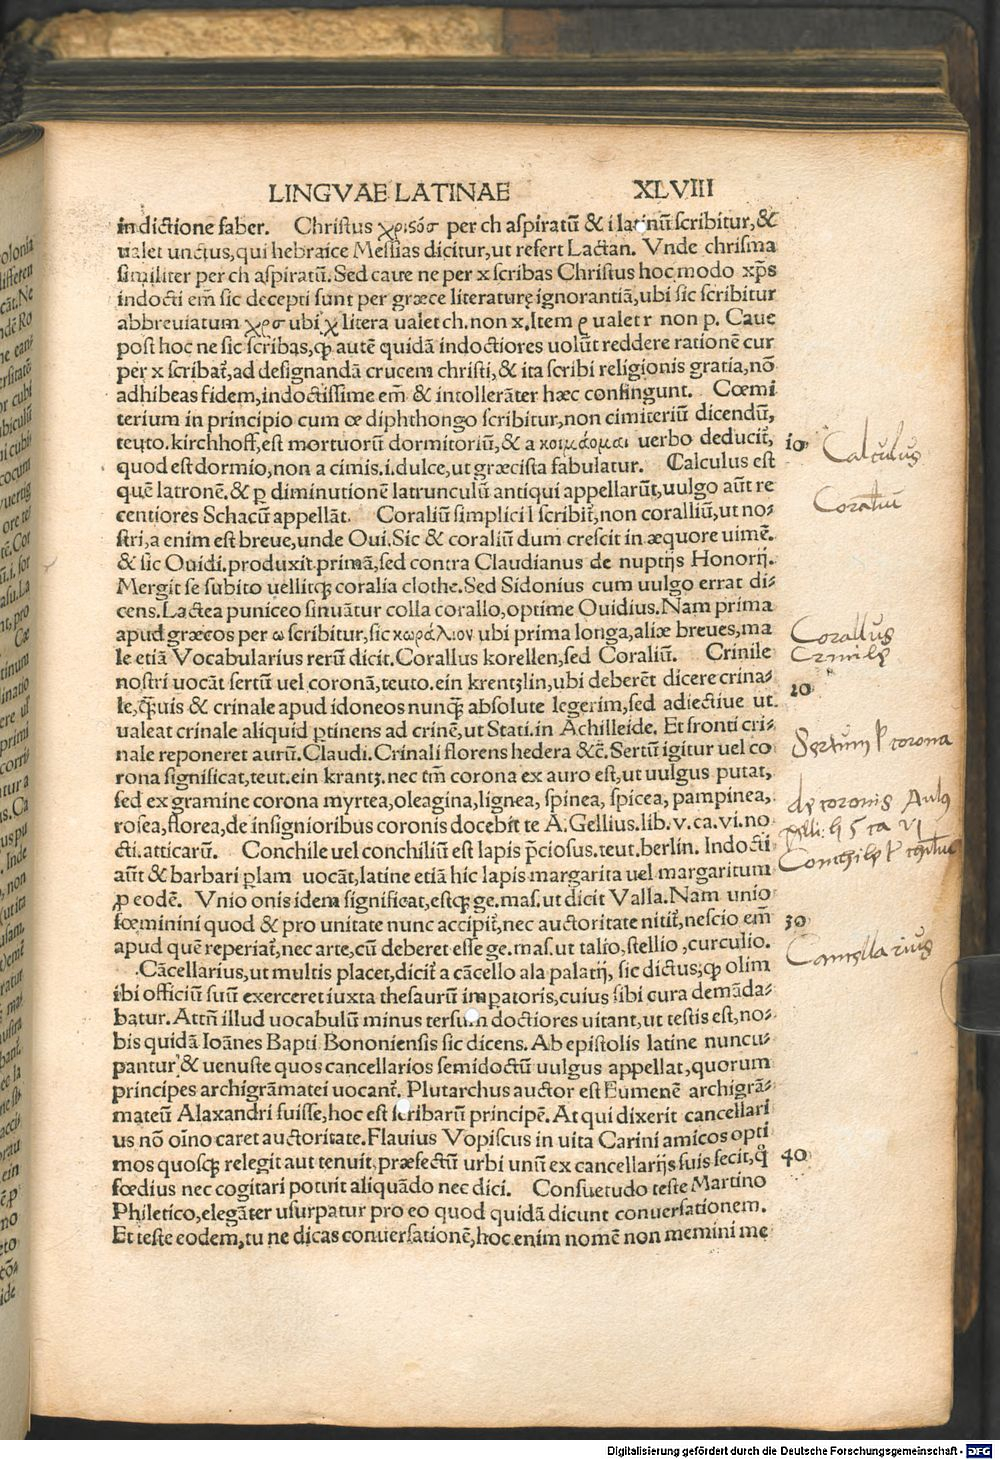 LINGVAE LATINAE XLVIII
in dictione faber. Christus χριςόσ per ch aspiratū & i latinū scribitur, &
ualet unctus, qui hebraice Messias dicitur, ut refert Lactan. Vnde chrisma
similiter per ch aspiratū. Sed caue ne per x scribas Christus hoc modo xp̄s
indocti em̄ sic decepti sunt per græce literaturę ignorantiā, ubi sic scribitur
abbreviatum χρσ ubi χ litera ualet ch. non x. Item ρ ualet r non p. Caue
post hoc ne sic scribas, ꝙ autē quidā indoctiores uolūt reddere rationē cur
per x scribat̄, ad designandā crucem christi, & ita scribi religionis gratia, nō
adhibeas fidem, indoctissime em̄ & intollerāter hæc confingunt. Cœmi
terium in principio cum œ diphthongo scribitur, non cimiteriū dicendū,
teuto. kirchhoff, est mortuorū dormitoriū, & a κοιμάομαι uerbo deducit̄,
quod est dormio, non a cimis. i. dulce, ut græcista fabulatur. Calculus est
quē latronē, & ꝑ diminutionē latrunculū antiqui appellarūt, uulgo aūt re
centiores Schacū appellāt. Coraliū simplici l scribit̄, non coralliū, ut no⸗
stri, a enim est breue, unde Oui. Sic & coraliū dum crescit in æquore uimē.
& sic Ouidi. produxit primā, sed contra Claudianus de nuptijs Honorij.
Mergit se subito uellitqꝫ coralia clothe. Sed Sidonius cum uulgo errat di⸗
cens. Lactea puniceo sinuātur colla corallo, optime Ouidius. Nam prima
apud græcos per ω scribitur, sic κωράλιον ubi prima longa, aliæ breues, ma
le etiā Vocabularius rerū dicit. Corallus korellen, sed Coraliū. Crinile
nostri uocāt sertū uel coronā, teuto. ein krentzlin, ubi deberēt dicere crina⸗
le, q̄uis & crinale apud idoneos nunq̄ absolute legerim, sed adiectiue ut
ualeat crinale aliquid ꝑtinens ad crinē, ut Stati. in Achilleide. Et fronti cri⸗
nale reponeret aurū. Claudi. Crinali florens hedera &c̄. Sertū igitur uel co
rona significat, teut. ein krantz. nec tm̄ corona ex auro est, ut uulgus putat,
sed ex gramine corona myrtea, oleagina, lignea, spinea, spicea, pampinea,
rosea, florea, de insignioribus coronis docebit te A. Gellius. lib. v. ca. vi. no
cti. atticarū. Conchile uel conchiliū est lapis p̄ciosus. teut. berlin. Indocti
aūt & barbari ꝑlam uocāt, latine etiā hic lapis margarita uel margaritum
ꝓ eodē. Vnio onis idem significat, estqꝫ ge. mas. ut dicit Valla. Nam unio
fœminini quod & pro unitate nunc accipit̄, nec auctoritate nitit̄, nescio em̄
apud quē reperiat̄, nec arte, cū deberet esse ge. mas. ut talio, stellio, curculio.
Cācellarius, ut multis placet, dicit̄ a cācello ala palatij, sic dictus, ꝙ olim
ibi officiū suū exerceret iuxta thesaurū imꝑatoris, cuius sibi cura demāda⸗
batur. Attn̄ illud uocabulū minus tersum doctiores uitant, ut testis est, no⸗
bis quidā Ioānes Bapti Bononiensis sic dicens. Ab epistolis latine nuncu⸗
pantur & uenuste quos cancellarios semidoctū uulgus appellat, quorum
principes archigrāmatei uocant̄. Plutarchus auctor est Eumenē archigrā⸗
mateū Alaxandri fuisse, hoc est scribarū principē. At qui dixerit cancellari
us nō oīno caret auctoritate. Flauius Vopiscus in uita Carini amicos opti
mos quosqꝫ relegit aut tenuit, præfectū urbi unū ex cancellarijs suis fecit, q̊
fœdius nec cogitari potuit aliquādo nec dici. Consuetudo teste Martino
Philetico, elegāter usurpatur pro eo quod quidā dicunt conuersationem.
Et teste eodem, tu ne dicas conuersationē, hoc enim nomē non memini me
10
Calculus
Coraliū
Corallus
Crinile
20
Sertum vel corona
de coronis Aulus
gelli: li 5 ca VI
Conchile vel
30
Cancellarius
40
Digitalisierung gefördert durch die Deutsche Forschungsgemeinschaft - DFG